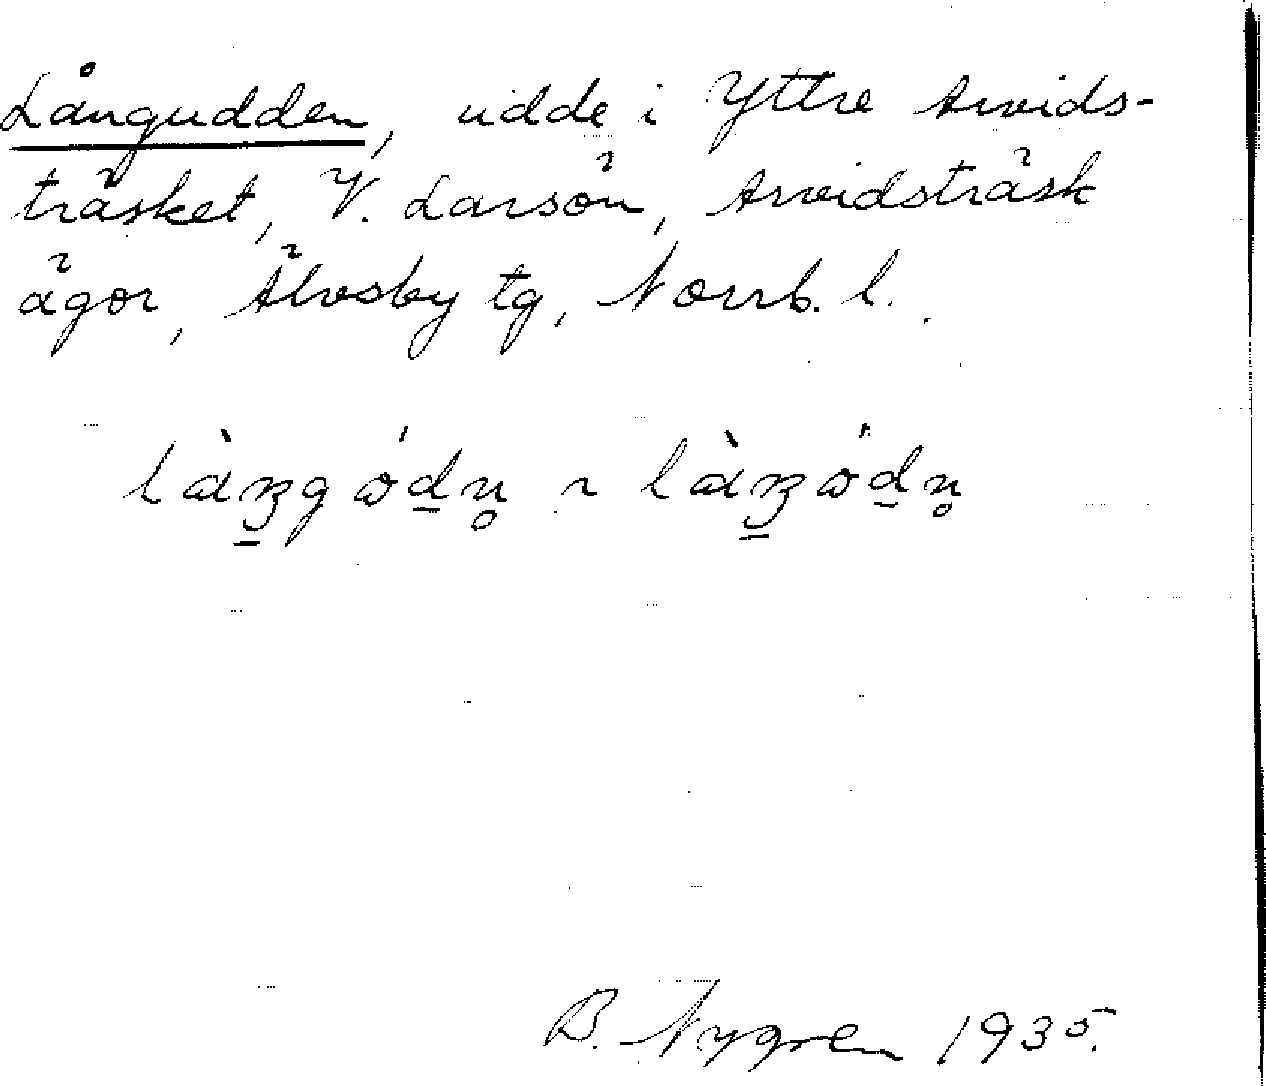 Långudden, udde i Yttre Arvids-
träsket, V. Larsön, Arvidsträsk
ägor, Älvsby tg, Norrb. l.
B. Nygren 1935.